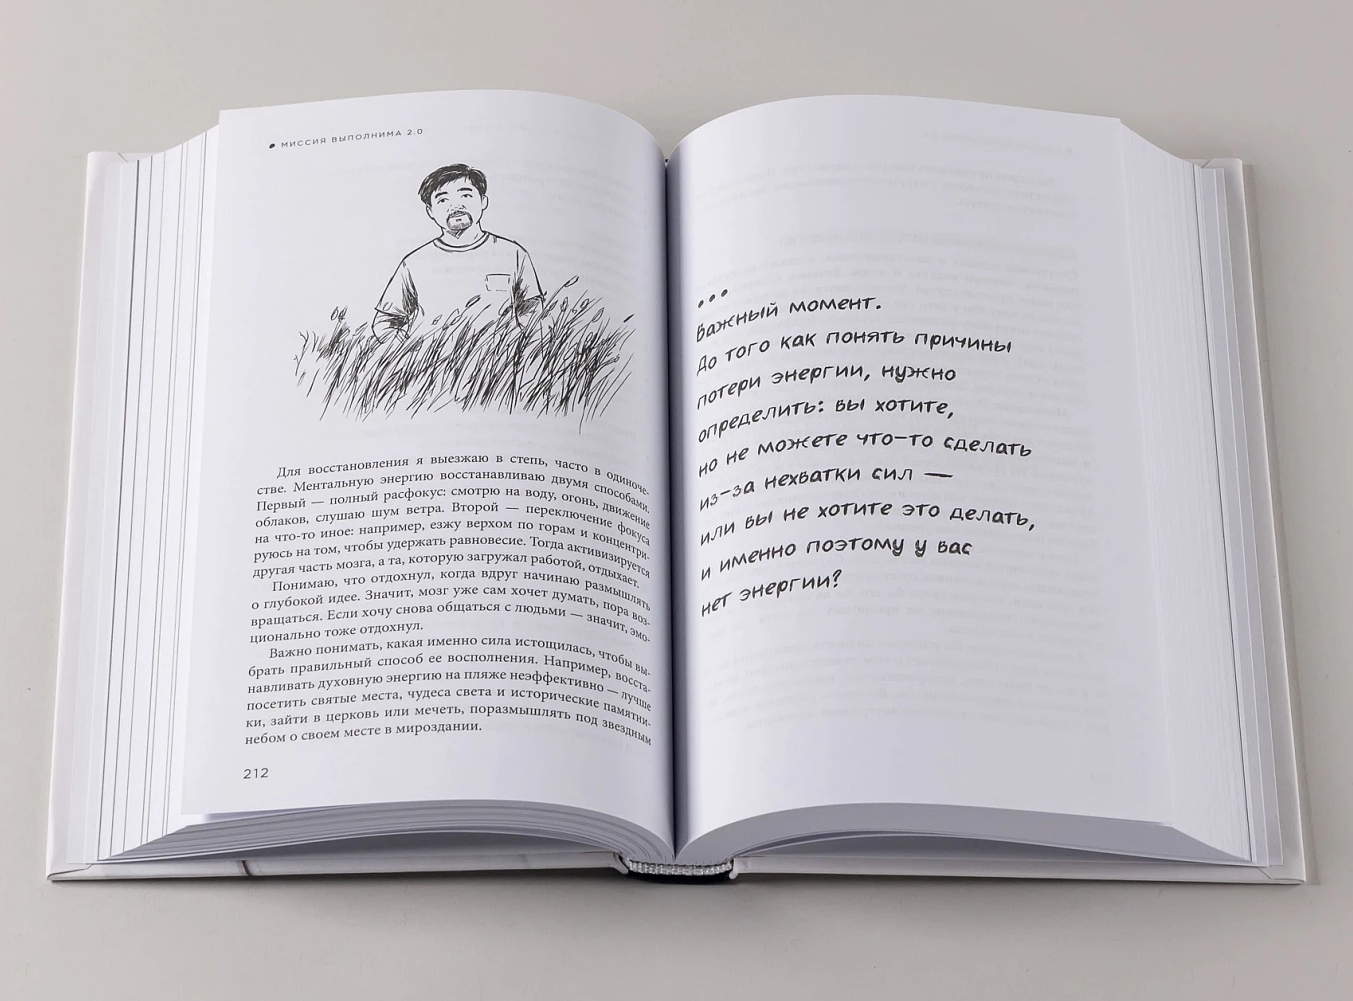 МИССИЯ ВЫПОЛНИМА 2.0
Для восстановления я выезжаю в степь, часто в одиноче-
стве. Ментальную энергию восстанавливаю двумя способами.
Первый — полный расфокус: смотрю на воду, огонь, движение
облаков, слушаю шум ветра. Второй — переключение фокуса
на что-то иное: например, езжу верхом по горам и концентри-
руюсь на том, чтобы удержать равновесие. Тогда активизируется
другая часть мозга, а та, которую загружал работой, отдыхает.
Понимаю, что отдохнул, когда вдруг начинаю размышлять
о глубокой идее. Значит, мозг уже сам хочет думать, пора воз-
вращаться. Если хочу снова общаться с людьми — значит, эмо-
ционально тоже отдохнул.
Важно понимать, какая именно сила истощилась, чтобы вы-
брать правильный способ ее восполнения. Например, восста-
навливать духовную энергию на пляже неэффективно — лучше
посетить святые места, чудеса света и исторические памятни-
ки, зайти в церковь или мечеть, поразмышлять под звездным
небом о своем месте в мироздании.
212
•••
Важный момент.
До того как понять причины
потери энергии, нужно
определить: вы хотите,
но не можете что-то сделать
из-за нехватки сил —
или вы не хотите это делать,
и именно поэтому у вас
нет энергии?